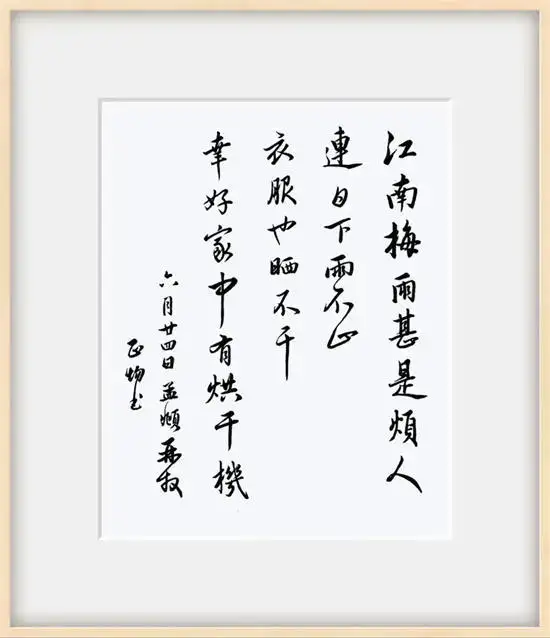 江南梅雨甚是煩人
連日下雨不止
衣服也晒不干
幸好家中有烘干機
六月廿四日孟頫再叔
正炳書